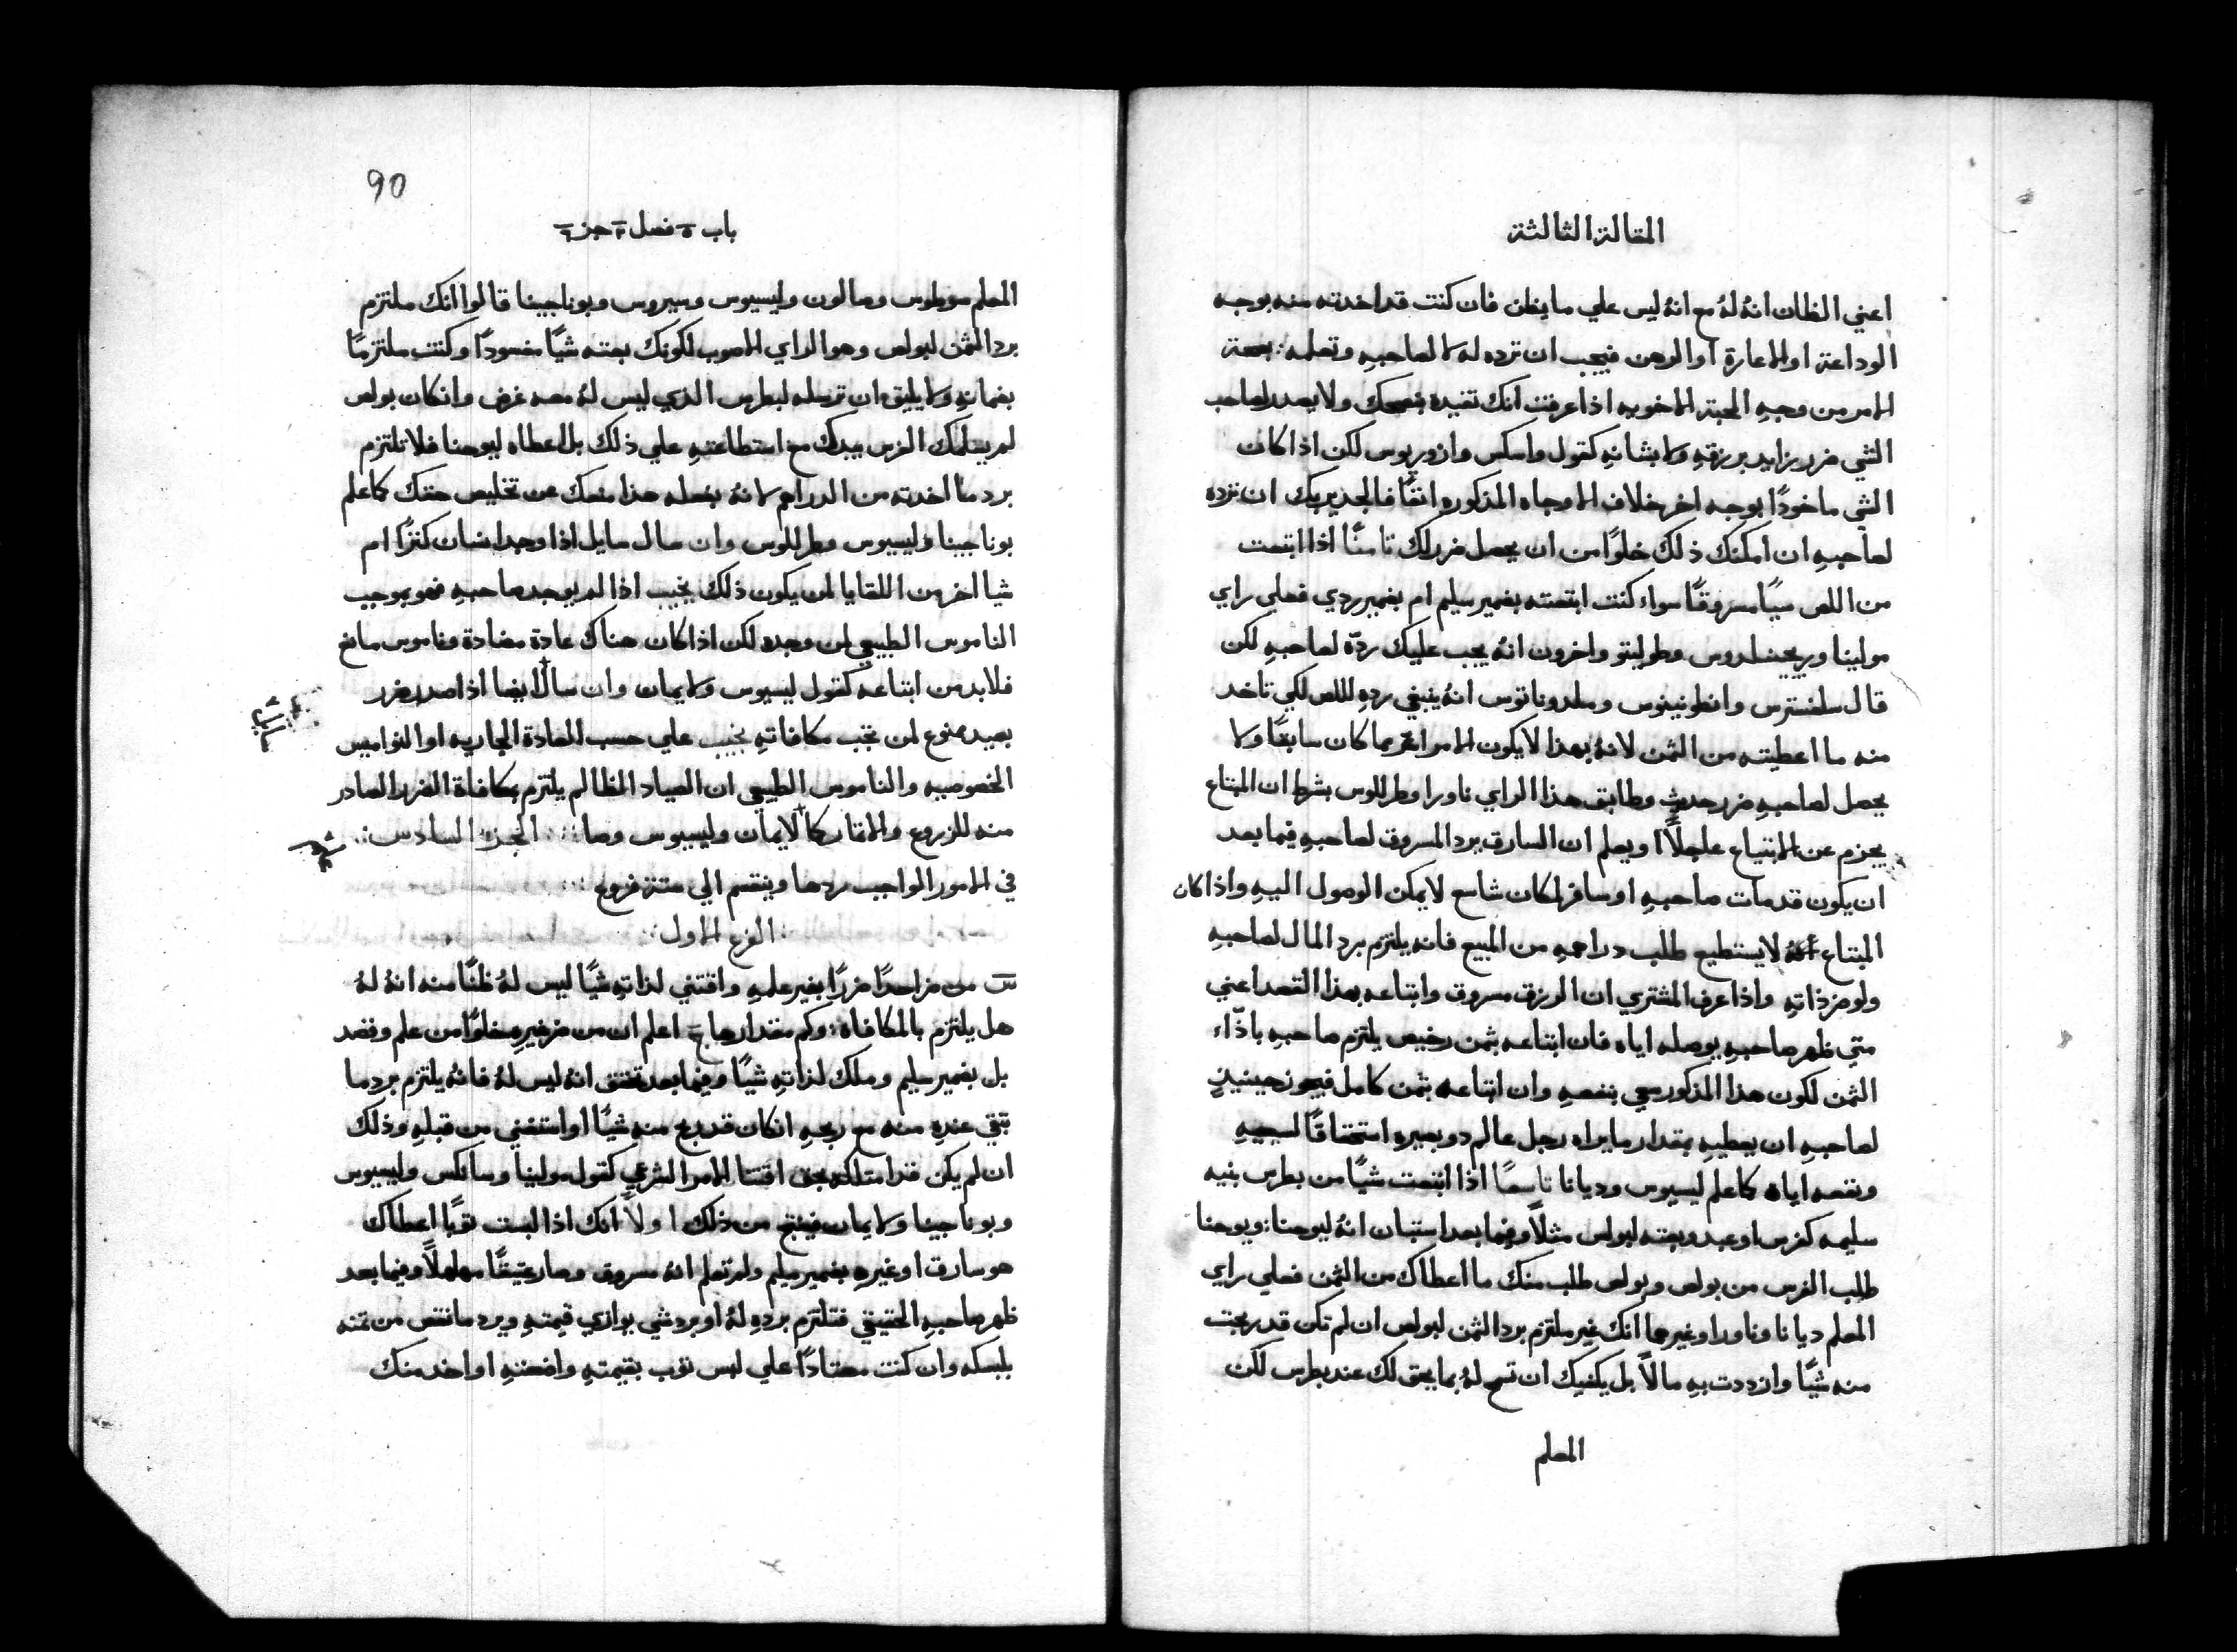 المقالة الثالثة
اعني الظان انهُ لهُ مع انهُ ليس علي ما يظن فان كنت قد اخدته منه بوجه
الوداعة او الاعارة او الرهن فيجب ان ترده له لا لصاحبهِ وتعلمه بصحة
الامر من وجهِ المحبة الاخويه اذا عرفت انك تفيده بنصحك ولا يصدر لصاحب
الشي ضرر بزايد برزقهِ ولا بشانهِ كقول واسكس وازوريوس لكن اذا كان
الشي ماخودًا بوجه اخر خلاف الاوجاه المذكوره انفًا فالجدير بك ان ترده
لصاحبهِ ان امكنك ذلك خلوًا من ان يحصل ضرر لك ثامنًا اذا ابتعت
من اللص شيًا مسروقًا سواء كنت ابتعته بضمير سليم ام بضمير ردي فعلي راي
مولينا وريجينلدوس وطوليتو واخرون انهُ يجب عليك ردّه لصاحبهِ لكن
قال سلفسترس وانطونينوس وملدوناتوس انهُ ينبغي ردهِ لللص لكي تاخد
منه ما اعطيته من الثمن لانهُ بهذا لا يكون الامر اشر مما كان سابقًا ولا
يحصل لصاحبهِ ضرر حديث وطابق هذا الراي ناورا وطرللوس بشرط ان المبتاع
يجزم عن الابتياع عاجلًا او يعلم ان السارق يرد المسروق لصاحبهِ فيما بعد
ان يكون قد مات صاحبهِ او سافر لمكان شاسع لا يمكن الوصول اليهِ واذا كان
المبتاع لا يستطيع طلب دراهمهِ من المبيع فانه يلتزم برد المال لصاحبهِ
ولو ضر ذاتهِ واذا عرف المشتري ان الرزق مسروق وابتاعه بهذا القصد اعني
متي ظهر صاحبهِ يوصله اياه فان ابتاعه بثمن رخيص يلتزم صاحبهِ باذّاء
الثمن لكون هذا المذكور سعي بنفعهِ وان ابتاعه بثمن كامل فيجوز حينيذٍ
لصاحبهِ ان يعطيهِ بمقدار ما يراه رجل عالم دو بصيره استحقاقًا لسعيهِ
ونفعه اياه كما علم ليسيوس وديانا تاسعًا اذا ابتعت شيًا من بطرس بنيه
سليمه كفرس او عبد وبعته لبولس مثلًا وفيما بعد استبان انهُ ليوحنا ويوحنا
طلب الفرس من بولس وبولس طلب منك ما اعطاك من الثمن فعلي راي
المعلم ديانا وناورا وغيرهما انك غير ملتزم برد الثمن لبولص ان لم تكن قد ربحت
منه شيًا وازددت بهِ مالًا بل يكفيك ان تسمح لهُ بما يحق لك عند بطرس لكن
المعلم
90
باب ٥ فصل ٢ جز ٦
المعلم سوطوس ومالون وليسيوس وسيروس وبوناجينا قالوا انك ملتزم
برد الثمن لبولص وهو الراي الاصوب لكونك بعته شيًا مفسودًا وكنت ملتزمًا
بضمانهِ ولا يليق ان ترسله لبطرس الذي ليس لهُ معه غرض وانكان بولص
لم يسلمك الفرس بيدك مع استطاعتهِ علي ذلك بل اعطاه ليوحنا فلا تلتزم
برد ما اخدته من الدراهم لانهُ بفعله هذا منعك عن تخليص حقك كما علم
بوناجينا وليسيوس وطرللوس وان سال سايل اذا وجد انسان كنزًا ام
شيا اخر من اللقايا لمن يكون ذلك يجيب اذا لم يوجد صاحبهِ فهو بموجب
الناموس الطبيعي لمن وجده لكن اذا كان هناك عادة مضادة وناموس مانع
فلا بد من اتباعه كقول ليسيوس ولايمان وان سال ايضا اذا صدر ضرر
بصيد ممنوع لمن تجب مكافاتهِ يجيب علي حسب العادة الجاريه او النواميس
الخصوصيه والناموس الطبيعي ان الصياد الظالم يلتزم بمكافاة الضرر الصادر
منه للزروع والاثمار كما لايمان وليسيوس وصا الجزء السادس
في الامور الواجب ردها وينقسم الي ستة فروع
الفرع الاول
س من ضر احدًا ضررًا بغير علمهِ واقتني لذاتهِ شيًا ليس لهُ ظنًا منه انهُ لهُ
هل يلتزم بالمكافاه وكم مقدارها ج اعلم ان من ضر غيرهِ خلوًا من علم وقصد
بل بضمير سليم وملك لذاتهِ شيًا وفيما بعد تحقق انهُ ليس لهُ فانهُ يلتزم برد ما
تبقي عندهِ منه مع ربحهِ انكان قد ربح منه شيًا او استغني من قبلهِ وذلك
ان لم يكن قد امتلكه بحق اقتنا الامر الشرعي كقول مولينا وسانكس وليسيوس
وبوناجينا ولايمان فينتج من ذلك اولًا انك اذا لبست ثوبًا اعطاك
هو سارق او غيره بضمير سليم ولم تعلم انهُ مسروق وصار عتيقًا مهلهلًا وفيما بعد
ظهر صاحبهِ الحقيقي فتلتزم بردهِ لهُ او برد شي يوازي قيمتهِ ويرد ما نقص من ثمنه
بلبسكه وان كنت معتادًا علي لبس ثوب بقيمتهِ وافضتهِ او اخد منك